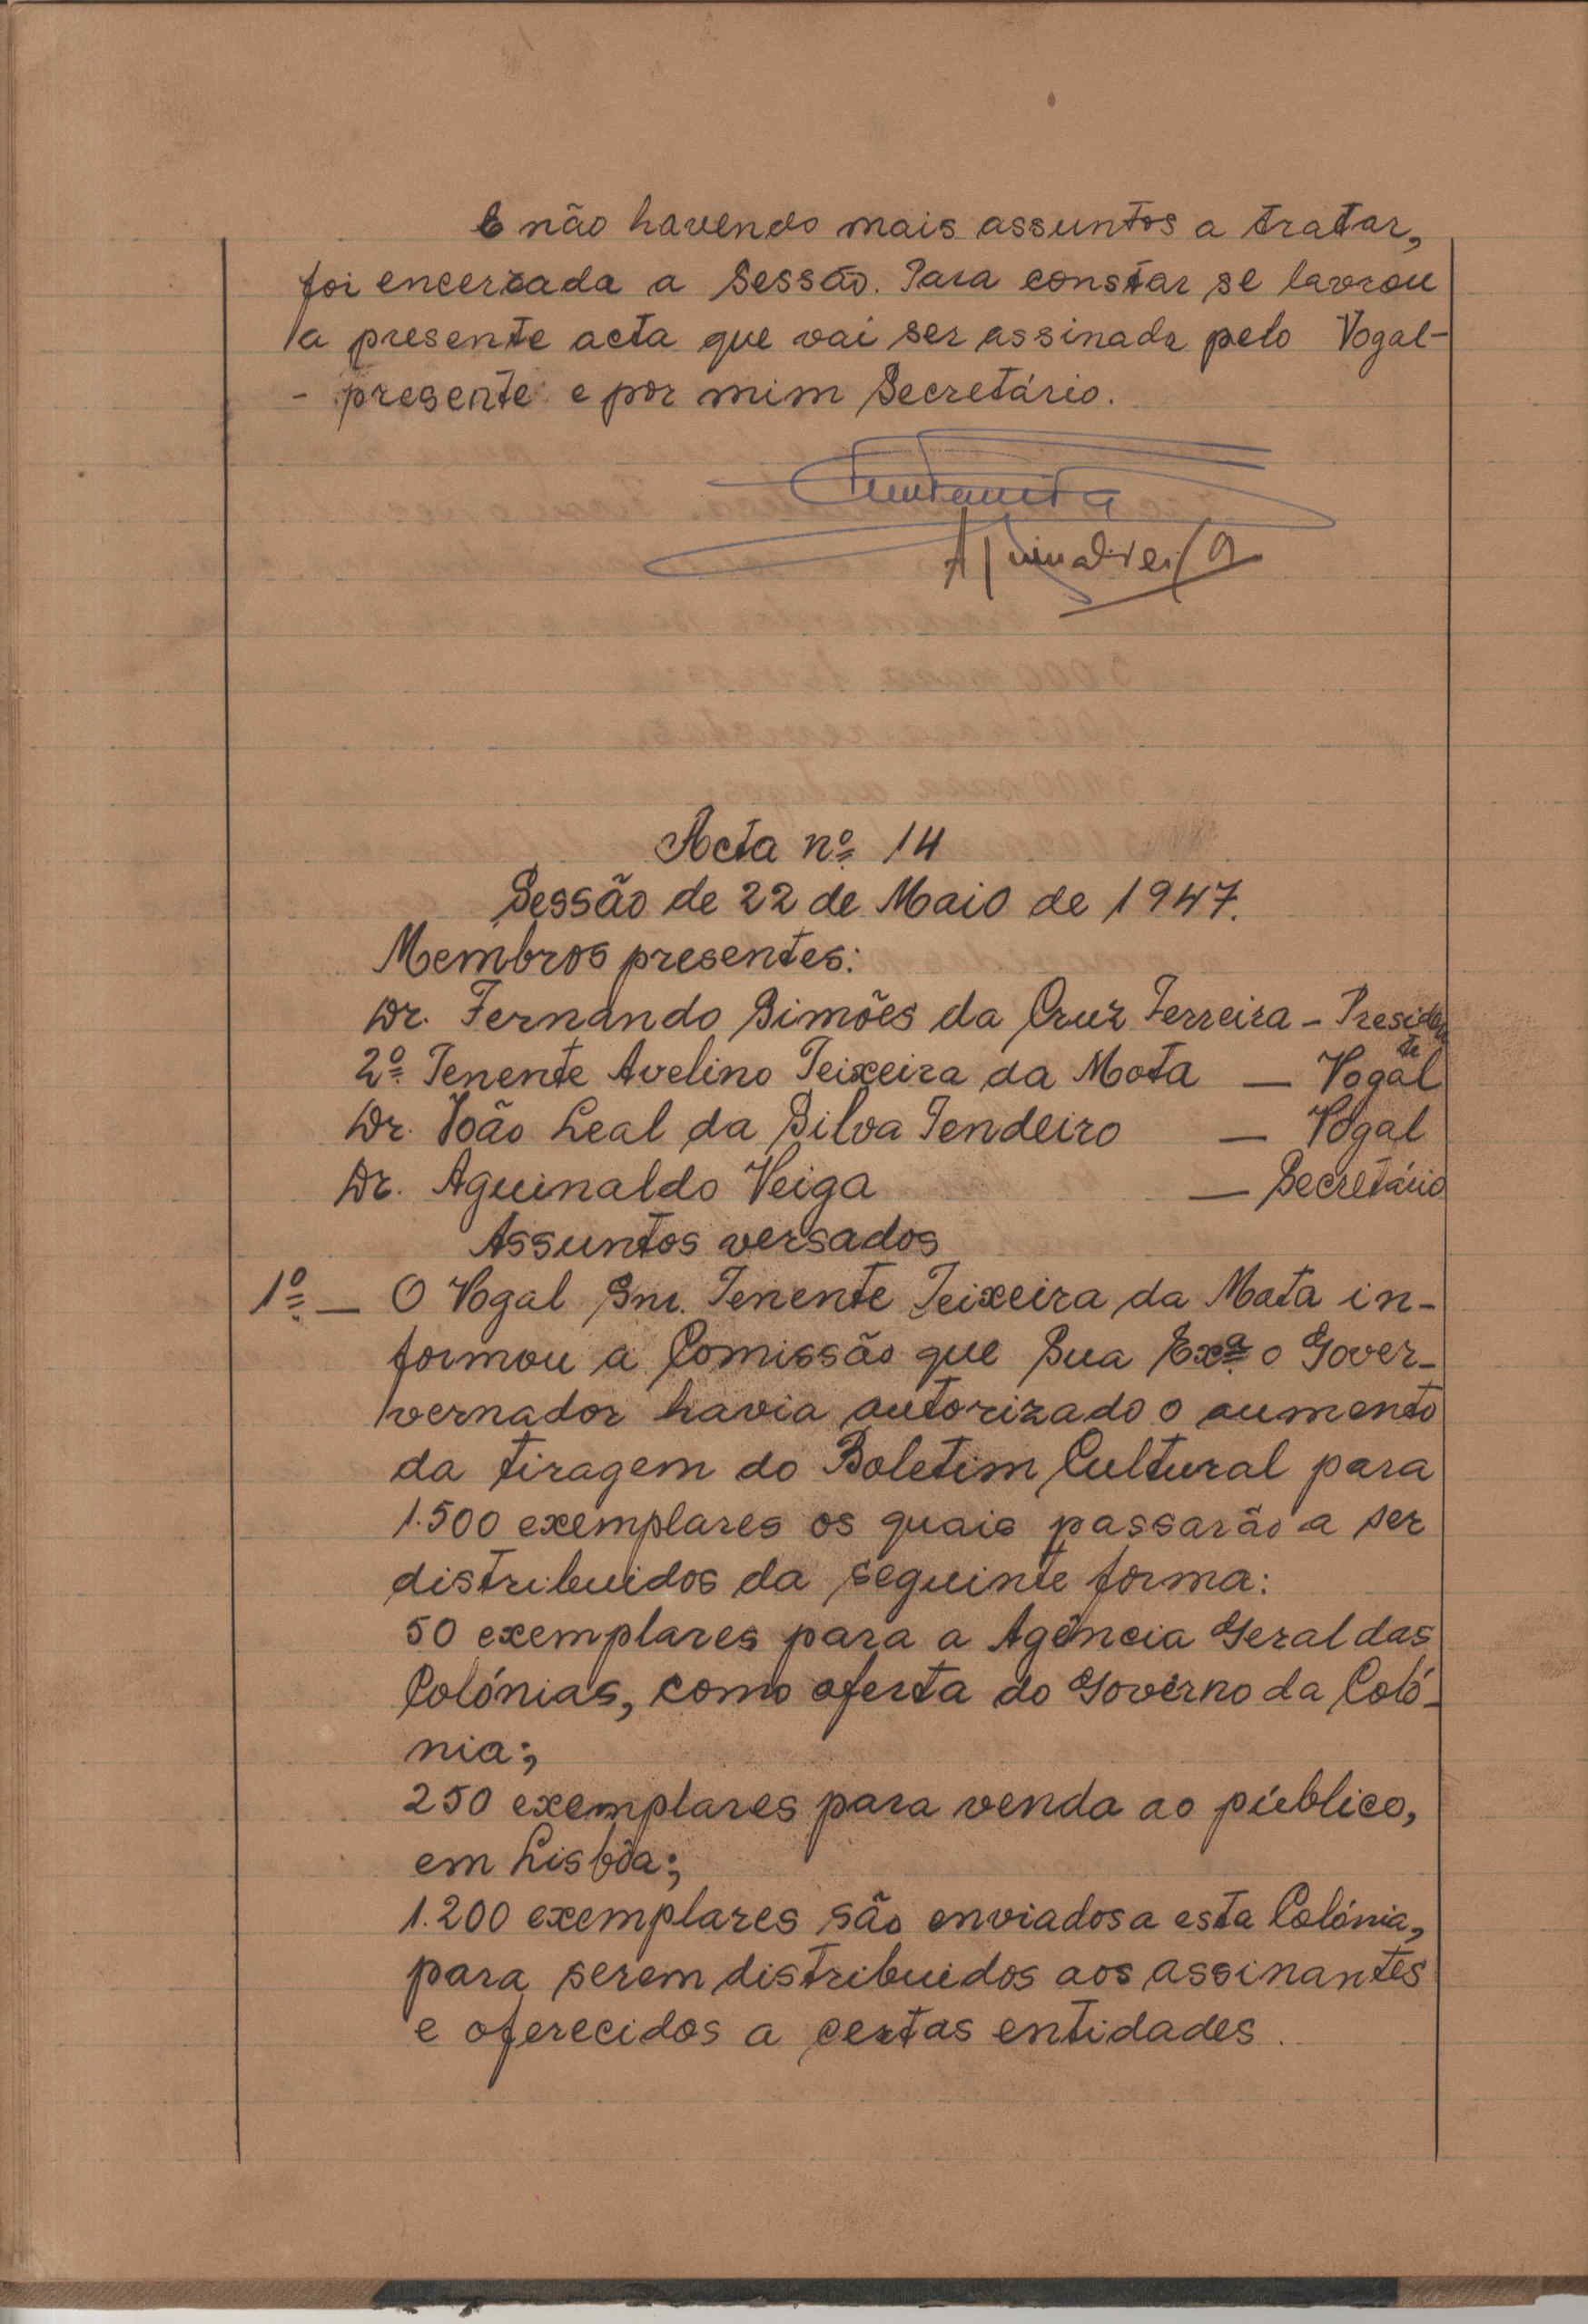 E não havendo mais assuntos a tratar,
foi encerrada a Sessão. Para constar se lavrou
a presente acta que vai ser assinada pelo Vogal-
- presente e por mim Secretário.
Acta nº 14
Sessão de 22 de Maio de 1947.
Membros presentes:
Dr. Fernando Simões da Cruz Ferreira - Presidente
2º Tenente Avelino Teixeira da Mota — Vogal
Dr. João Leal da Silva Tendeiro — Vogal
Dr. Aguinaldo Veiga — Secretário
Assuntos versados
1º — O Vogal Snr. Tenente Teixeira da Mota in-
formou a Comissão que Sua Exª o Gover-
vernador havia autorizado o aumento
da tiragem do Boletim Cultural para
1.500 exemplares os quais passarão a ser
distribuidos da seguinte forma:
50 exemplares para a Agência Geral das
Colónias, como oferta do Govêrno da Coló-
nia;
250 exemplares para venda ao público,
em Lisbôa;
1.200 exemplares são enviados a esta Colónia,
para serem distribuidos aos assinantes
e oferecidos a certas entidades.